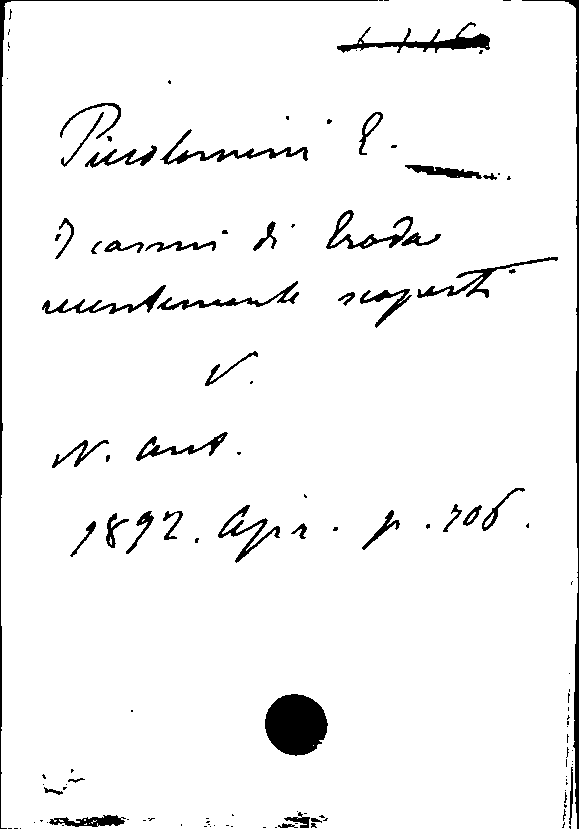 Piccolomini E.
I carmi di Eroda
recentemente scoperti
V.
N. Ant.
1892. Apr. p. 706.